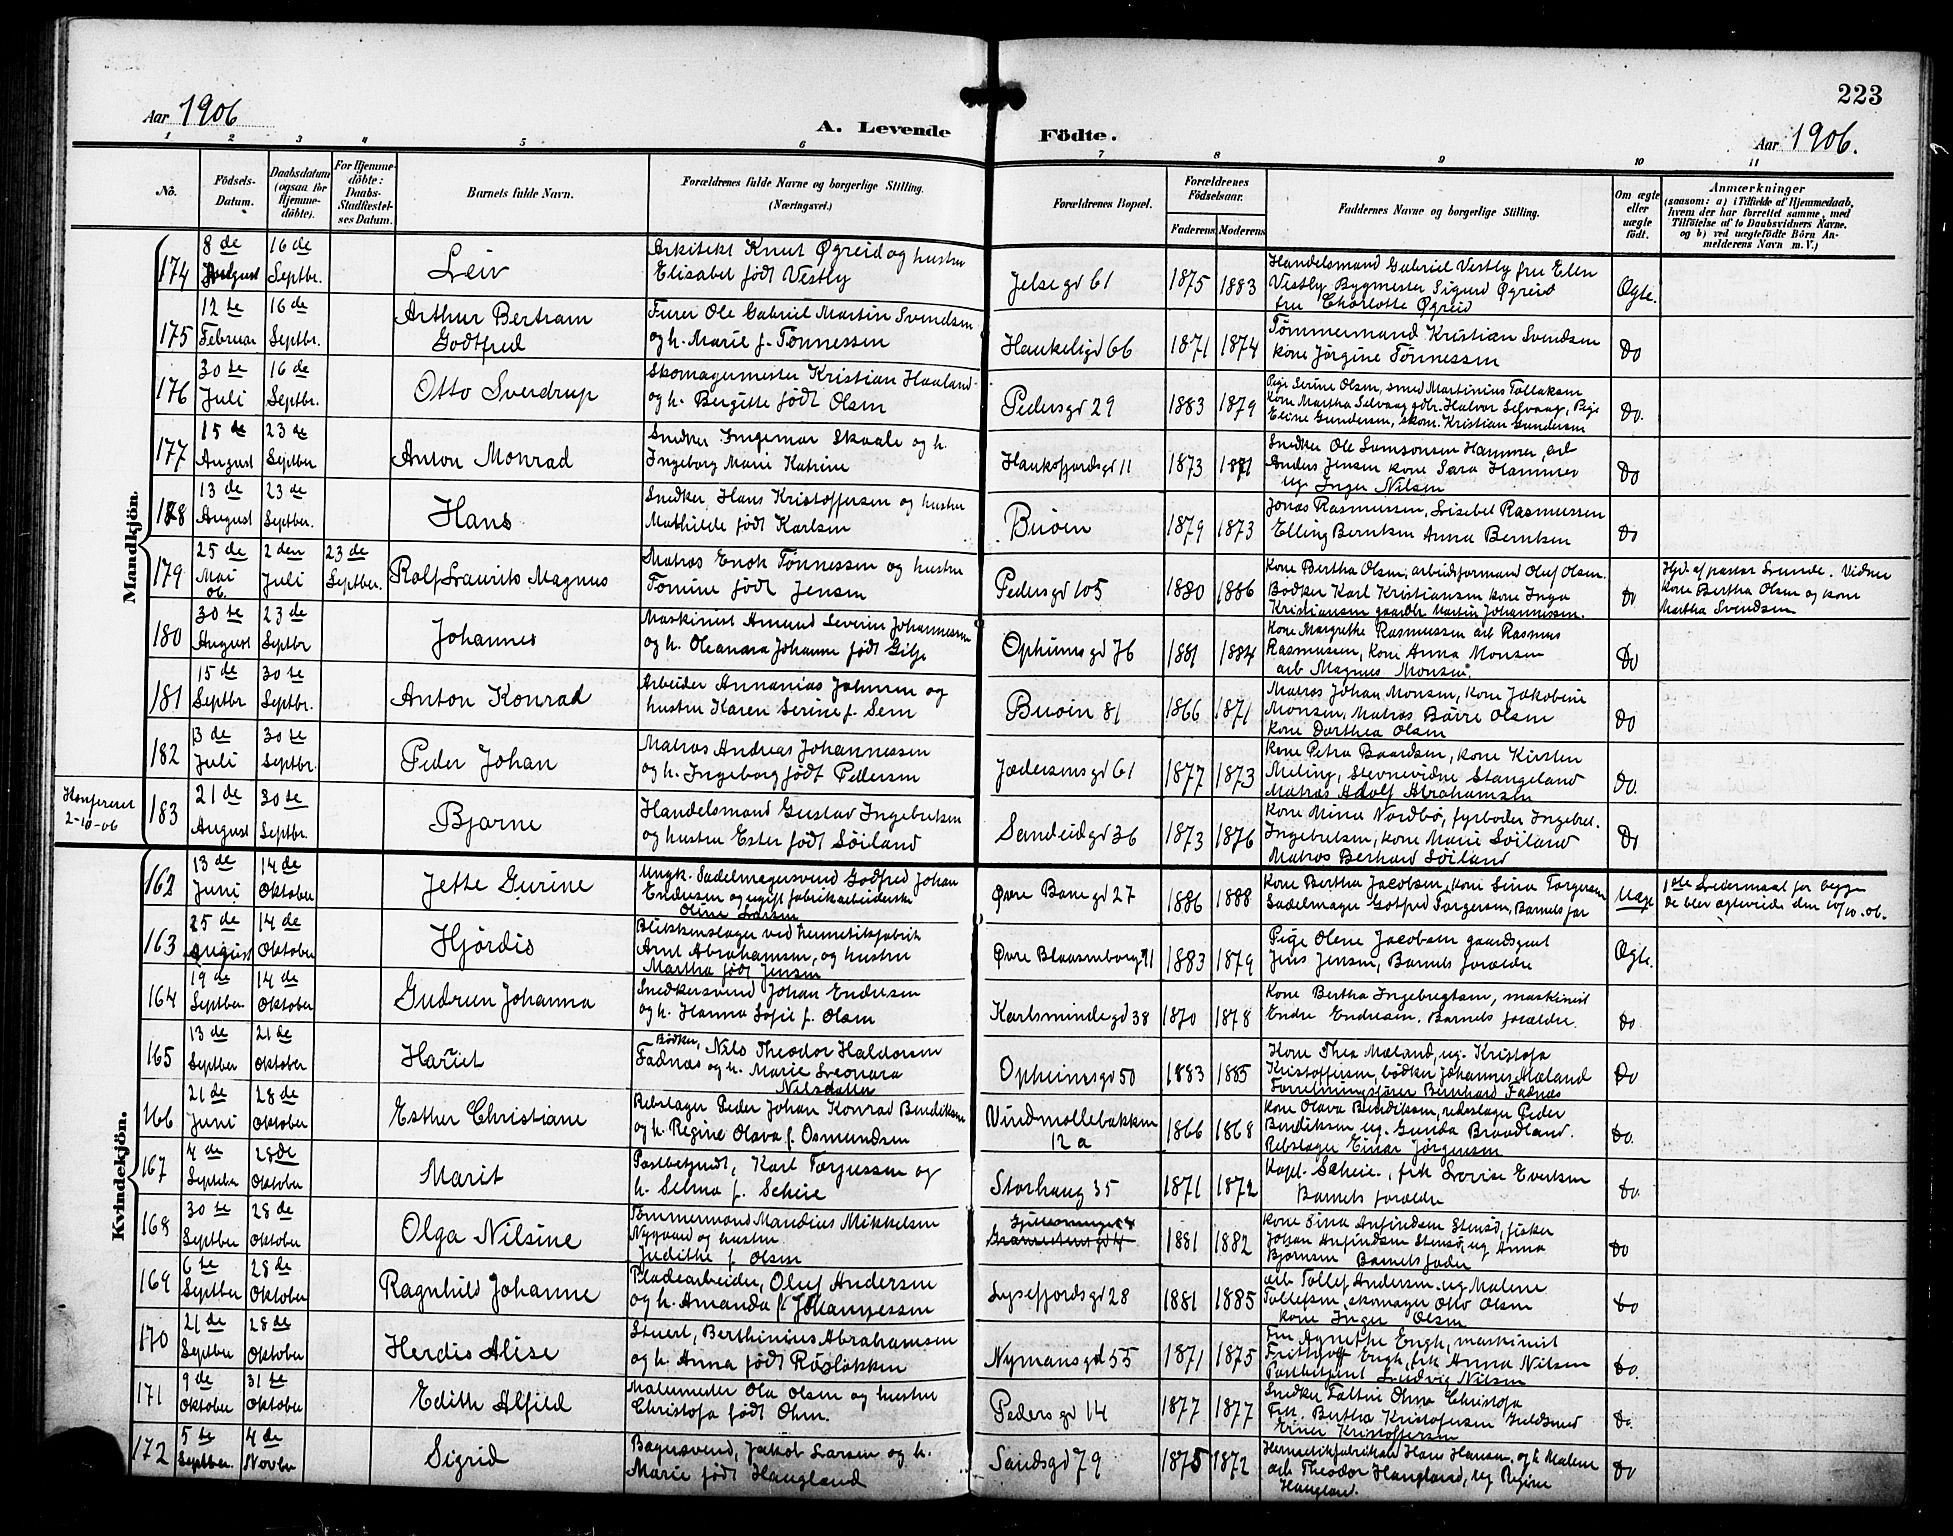 223
Aar 1906
A. Levende Födte.
Aar 1906.
1 2 3 4 5 6 7 8 9 10 11
No.
Födsels-Datum.
Daabsdatum (ogsaa for Hjemme-döbte).
For Hjemme-döbte: Daabs-Stadfæstel-ses Datum.
Barnets fulde Navn.
Forældrenes fulde Navne og borgerlige Stilling.
(Næringsvei.)
Forældrenes Bopæl.
Forældrenes Födselsaar.
Faderens. Moderens.
Faddernes Navne og borgerlige Stilling.
Om ægte eller uægte födt.
Anmærkninger
(saasom: a) i Tilfælde af Hjemmedaab,
hvem der har forrettet samme, med
Tilföielse af to Daabsvidners Navne.
og b) ved uægtefödte Börn An-
melderens Navn m. V.)
Mandkjön.
174 8 de August 16 de Septbr. Leiv Arkitekt Knut Øgreid og hustru
Elisabet født Vestly Jelsegd 61 1875 1883 Handelsmand Gabriel Vestly fru Elen
Vestly Bygmester Sigurd Øgreid
fru Charlotte Øgreid Ægte.
175 12 te Februar 16 de Septbr. Arthur Bertram
Godtfred Furer Ole Gabriel Martin Svendsen
og h. Marie f. Tønnessen Haukeligd 66 1871 1874 Tømmermand Kristian Svendsen
kone Jørgine Tønnessen Do
176 30 te Juli 16 de Septbr. Otto Sverdrup Skomagermester Kristian Haaland
og h. Bergitte født Olsen Pedersgd 29 1883 1879 Pige Serine Olsen, smed Martinius Tollaksen
kone Martha Selvaag gdbr. Halvor Selvaag, Pige
Eline Gundersen, skom. Kristian Gundersen Do.
177 15 de August 23 de Septber Anton Monrad Snedker Ingemar Skaale og h.
Ingeborg Marie Katrine Hauksfjordsgd 11 1873 1871 Snedker Ole Samsonsen Hammer, arb
Anders Jensen kone Sara Hammer
ug Inger Nilsen Do
178 13 de August 23 de Septber. Hans Snedker Hans Kristoffersen og hustru
Mathilde født Karlsen Buøen 1879 1873 Jonas Rasmussen, Lisebet Rasmussen
Elling Berntsen Anna Berntsen Do
179 25 de Mai 06. 2 den Juli 23 de Septber. Rolf Laurits Magnus Matros Enok Tønnessen og hustru
Tomine født Jensen Pedersgd 105 1880 1886 Kone Bertha Olsen, arbeidsformand Oluf Olsen.
Bødker Karl Kristiansen kone Inga
Kristiansen gaardbr Martin Johannessen. Do Hjd. af pastor Svende. Vidner
kone Bertha Olsen og kone
Martha Svendsen
180 30 te August 23 de Septbr Johannes Maskinist Amund Severin Johannessen
og h. Oleanara Johanne født Gilje Opheimsgd 76 1881 1884 Kone Margrethe Rasmussen arb Rasmus
Rasmussen, kone Anna Monsen
arb Magnus Monsen. Do
181 15 de Septbr 30 te Septbr. Anton Konrad Arbeider Annanias Johnsen og
hustru Karen Serine f. Sem Buøin 81 1866 1871 Matros Johan Monsen, kone Jakobine
Monsen, Matros Børre Olsen
kone Dorthea Olsen Do
182 13 de Juli 30 te Septbr. Peder Johan Matros Andreas Johannessen
og h. Ingeborg født Pedersen Jædersensgd 61 1877 1873 Kone Petra Baardsen, kone Kirsten
Meling, Stevnevidne Stangeland
Matros Adolf Abrahamsen Do.
Konfereret
2-10-06
183 21 de August 30 te Septbr. Bjarne Handelsmand Gustav Ingebretsen
og hustru Ester født Søiland Sandeidgd 36 1873 1876 Kone Mina Nordbø, fyrbøder Ingebret.
Ingebretsen, kone Marie Søiland
Matros Berhard Søiland Do
Kvindekjön.
162 13 de Juni 14 de Oktober Jette Gurine Ungk. Sadelmagersvend Godfred Johan
Endresen og ugift fabrikarbeiderske
Oline Larsen Øvre Banegd 27 1886 1888 Kone Bertha Jacobsen, kone Sina Torgersen
Sadelmager Gotfred Torgersen, Barnets far Uægt 1ste Leiermaal for begge
De blev ægteviede den 10/10. 06.
163 25 de August 14 de Oktober Hjørdis Blikkenslager ved hermetikfabrik
Arnt Abrahamsen, og hustru
Martha født Jensen Øvre Blaasenborg 71 1883 1879 Pige Olene Jacobsen gaardsgut
Jens Jensen, Barnets forældre Ægte.
164 19 de Septber 14 de Oktober Gudrun Johanna Snedkersvend Johan Endresen
og h. Hanna Sofie f. Olsen Karlsmindegd 38 1870 1878 Kone Bertha Ingebregtsen, maskinist
Endre Endresen. Barnets forældre. Do
165 13 de Septber 21 de Oktober Hariet Bødker, Nils Theodor Haldorsen
Fadnæs og h. Marie Leonara
Nilsdatter Opheimsgd 50 1883 1885 Kone Thea Mæland, ug. Kristofa
Kristoffersen, bødker Johannes Mæland
Forretningsfører Bernhard Fadnæs Do
166 21 de Juni 28 de Oktober Esther Christiane Rebslager Peder Johan Konrad Bendiksen
og h. Regine Olava f. Osmundsen Vindmøllebakken
12 a 1866 1868 Kone Olava Bendiksen, rebslager Peder
Bendiksen ug. Gunda Braadland.
Rebslager Einar Jørgensen Do.
167 4 de Septeber 28 de Oktober Marit Postbetjendt, Karl Torjussen og
h. Selma f. Scheie Storhaug 35 1871 1872 Kapt. Scheie., frk Lovise Evertsen
Barnets forældre Do.
168 30 te Septber 28 de Oktober Olga Nilsine Tømmermand Mandius Mikkelsen
Nygaard og hustru
Judithe f. Olsen 1881 1882 Kone Sina Anfindsen Stensø, fisker
Johan Anfindsen Stensø, ug Anna
Bjørnsen Barnets fader Do
169 6 te Septber 28 de Oktober Ragnhild Johanne Pladearbeider, Oluf Andersen
og h. Amanda f. Johannessen Lysefjordsgd 28 1881 1885 arb Tollef Andersen ug Malene
Tollefsen, skomager Otto Olsen
kone Inger Olsen Do
170 21 de Septber 28 de Oktober Herdis Alise Stuert, Berthinius Abrahamsen
og h. Anna født Røsløkken Nymansgd 55 1871 1875 Fru Agnethe Engh, maskinist
Frithjoff Engh, frk Anna Nilsen
Postbetjent Ludvig Nilsen Do.
171 9 de Oktober 31 te Oktober Edith Alfild Malemester Ola Olsen og hustru
Christofa født Ohm. Pedersgd 14 1877 1877 Snedker Tallin Ohm Christofa
Frk. Bertha Kristofersen Guldsmed
Einer Kristoffersen Do.
172 5 te Septber. 4 de Novbr Sigrid Bagersvend, Jakob Larsen og h.
Marie født Haugland Sandsgd 79 1875 1872 Hermetikfabrikar Hans Hansen og h Malene
arb Theodor Haugland, ug Regine
Haugland. Do